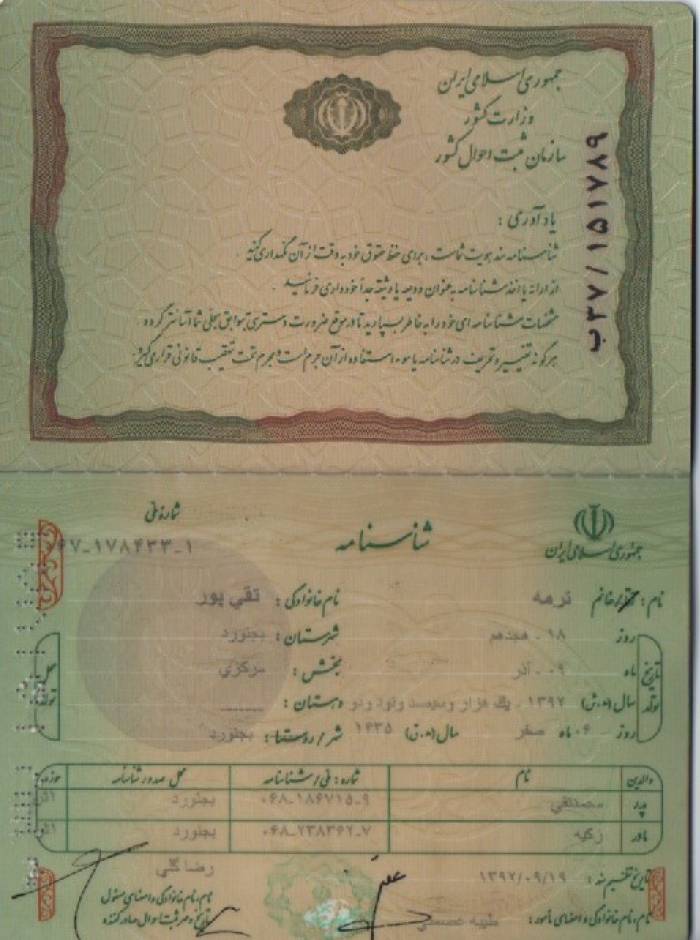 جمهوری اسلامی ایران
وزارت کشور
سازمان ثبت احوال کشور
ب۳۷/۱۵۱۷۸۹
یادآوری :
شناسنامه سند هویت شماست ، برای حفظ حقوق خود به دقت از آن نگهداری کنید .
از ارائه یا اخذ شناسنامه به عنوان ودیعه یا وثیقه جداً خودداری فرمائید .
مشخصات شناسنامه ای خود را به خاطر بسپارید تا در موقع ضرورت دسترسی به سوابق سجلی شما آسانتر گردد .
هر گونه تغییر و تحریف در شناسنامه یا سوء استفاده از آن جرم است و مجرم تحت تعقیب قانونی قرار می گیرد .
شماره ملی
۰۶۷-۱۷۸۴۳۳-۱
شناسنامه
جمهوری اسلامی ایران
نام : خانم ترمه نام خانوادگی : تقی پور
تاریخ تولد
روز ۱۸ . هجدهم شهرستان : بجنورد
ماه ۰۹ . آذر بخش : مرکزی
سال (ه.ش) ۱۳۹۲ . یک هزار و سیصد و نود و دو دهستان :
روز ۰۶ ماه صفر سال (ه.ق) ۱۴۳۵ شهر / روستا : بجنورد
محل تولد
والدین نام شماره : ملی / شناسنامه محل صدور شناسنامه حوزه
پدر محمدتقی ۰۶۸-۱۸۶۷۱۵-۹ بجنورد
مادر زکیه ۰۶۸-۲۳۸۳۶۲-۷ بجنورد
تاریخ تنظیم سند : ۱۳۹۲/۰۹/۱۹ رضا گلی
نام ، نام خانوادگی و امضای مأمور : طیبه
نام ، نام خانوادگی و امضای مسئول
تاریخ و مهر ثبت احوال صادر کننده